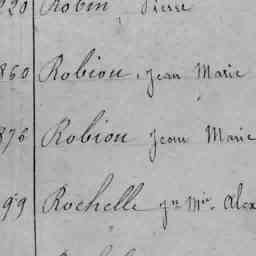 220 Robin Pierre
860 Robiou, Jean Marie
876 Robiou Jean Marie
99 Rochelle Jn Mie. Alex